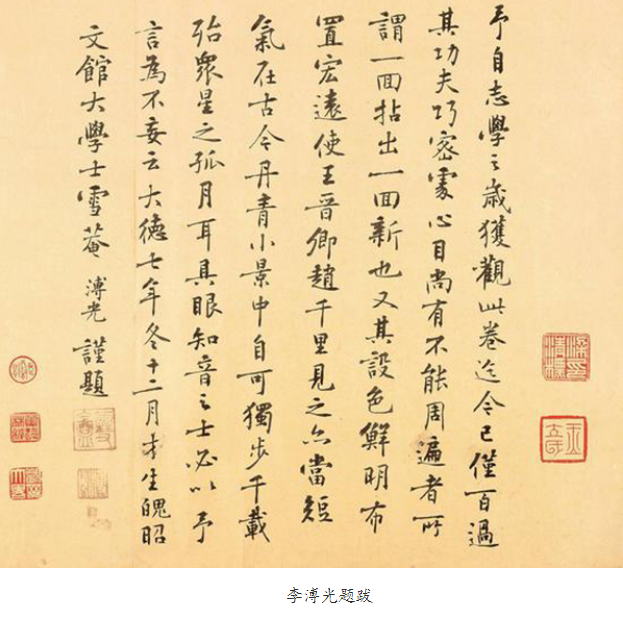 予自志學之歲獲觀此卷迄今已僅百過
其功夫巧密處心目尚有不能周遍者所
謂一面拈出一面新也又其設色鮮明布
置宏遠使王晉卿趙千里見之亦當短
氣在古今丹青小景中自可獨步千載
殆衆星之孤月耳具眼知音之士必以予
言為不妄云大德七年冬十二月才生魄昭
文館大學士雪菴溥光謹題
李溥光题跋